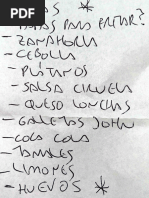 - PAPAS PARA FREIR?
- ZANAHORIA
- CEBOLLA
- PLÁTANOS
- SALSA CIRUELA
- QUESO LONCHAS
- GALLETAS JOHN
- COCA COLA
- TAMALES
- LIMONES
- HUEVOS *